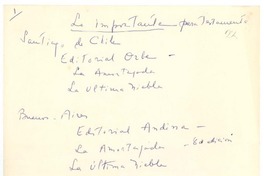 1
Lo importante para Testamento
Santiago de Chile
Editorial Orbe -
La Amortajada
La Ultima Niebla
Buenos-Aires
Editorial Andina -
La Amortajada - Edición
La Última Niebla